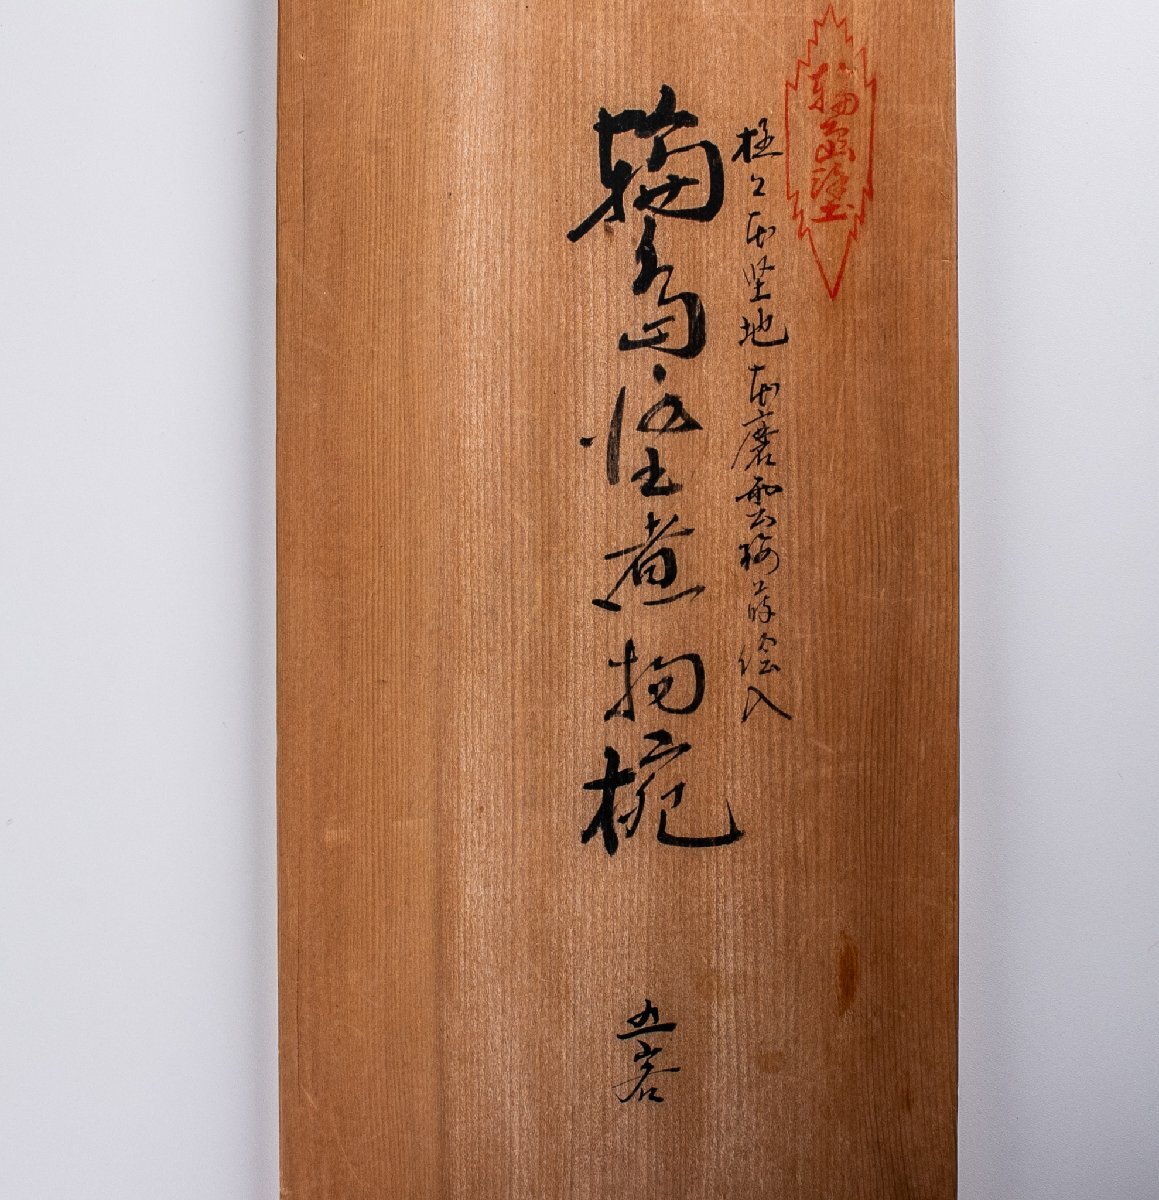 輪島塗
極上本堅地本磨雲梅蒔絵入
輪島塗煮物椀
五客